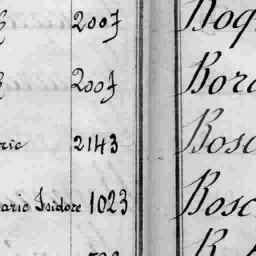 2007 Boq
2007 Bor
rie 2143 Bosc
arie Isidore 1023 Bosc